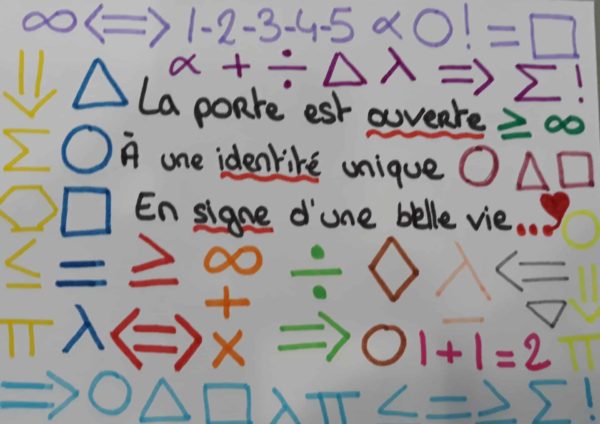 ∞ ⇔ 1-2-3-4-5 ∝ ○ ! = □
⇓ △ ∝ + ÷ △ λ ⇒ Σ !
La porte est ouverte ≥ ∞
Σ ○ À une identité unique ○ △ □
⬡ □ En signe d'une belle vie... ♥ ○
≤ = ≥ ∞ ÷ ◇ λ ⇐ ⇓
+ − ▽
π λ ⇔ × ⇒ ○ 1+1=2 π
⇒ ○ △ □ λ π < = > Σ !